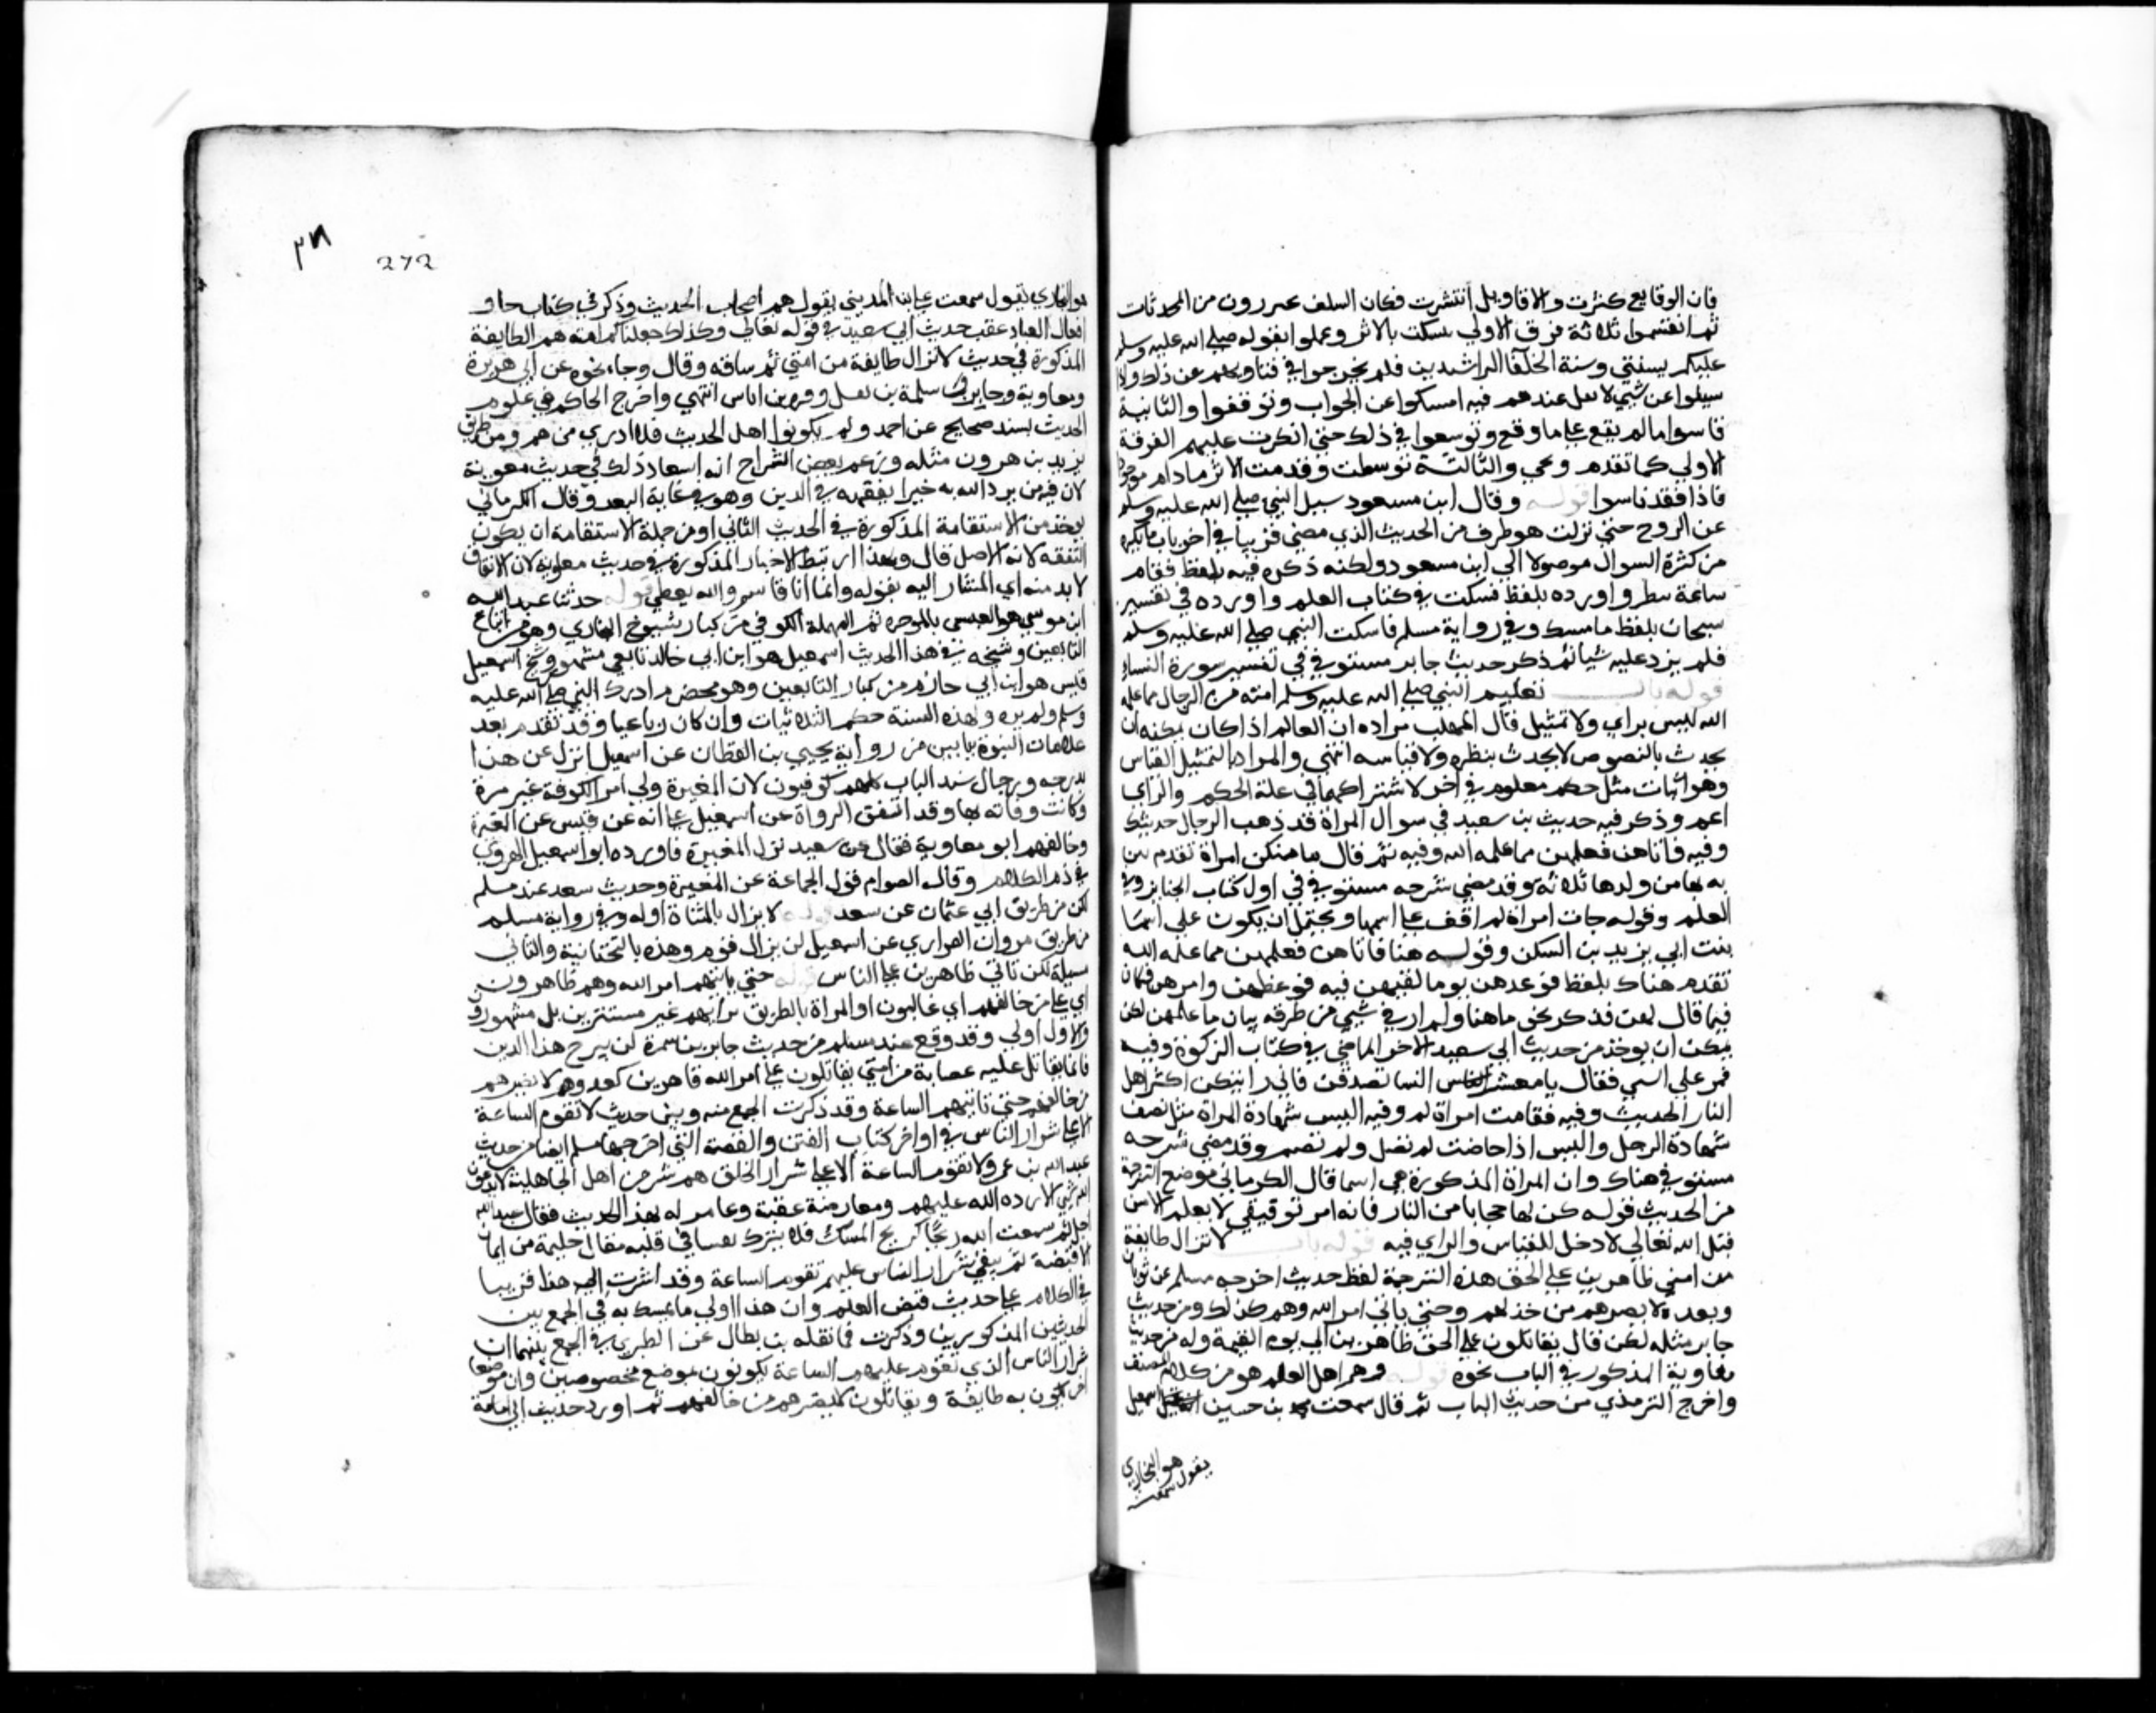 فان الوقايع كثرت والاقاويل انتشرت فكان السلف يحررون من المحدثات
ثم انقسموا ثلاثة فرق الاولي تمسكت بالاثر وعملوا بقوله صلى الله عليه وسلم
عليكم بسنتي وسنة الخلفا الراشدين فلم يخرجوا في فتاويهم عن ذلك واذا
سيلوا عن شي لا نقل عندهم فيه امسكوا عن الجواب وتوقفوا والثانية
قاسوا ما لم يقع على ما وقع وتوسعوا في ذلك حتي انكرت عليهم الفرقة
الاولي كما تقدم ويجي والثالثة توسطت وقدمت الاثر مادام موجودا
فاذا فقد قاسوا قوله وقال ابن مسعود سيل النبي صلى الله عليه وسلم
عن الروح حتي نزلت هو طرف من الحديث الذي مضي قريبا في اخر باب ما يكره
من كثرة السوال موصولا الي ابن مسعود ولكنه ذكره فيه بلفظ فقام
ساعة ينظر واورده بلفظ فسكت في كتاب العلم واورده في تفسير
سبحان بلفظ فامسك وفي رواية مسلم فاسكت النبي صلى الله عليه وسلم
فلم يرد عليه شيا ثم ذكر حديث جابر مستوفي في تفسير سورة النساء
قوله باب تعليم النبي صلى الله عليه وسلم امته من الرجال مما علمه
الله ليس براي ولا تمثيل قال المهلب مراده ان العالم اذا كان يمكنه ان
يحدث بالنصوص لا يحدث بنظره ولا قياسه انتهي والمراد بالتمثيل القياس
وهو اثبات مثل حكم معلوم في اخر لاشتراكهما في علة الحكم والراي
اعم وذكر فيه حديث بن سعيد في سوال المراة قد ذهب الرجال بحديثك
وفيه فاتاهن فعلمهن مما علمه الله وفيه ثم قال ما منكن امراة تقدم بين
يديها من ولدها ثلاثة وقد مضي شرحه مستوفي في اول كتاب الجنايز وفي
العلم وقوله جات امراة لم اقف على اسمها ويحتمل ان يكون علي اسما
بنت ابي يزيد بن السكن وقوله هنا فاتاهن فعلمهن مما علمه الله
تقدم هناك بلفظ فوعدهن يوما لقيهن فيه فوعظهن وامرهن فكان
فيما قال لهن فذكر نحو ما هنا ولم ار في شي من طرقه بيان ما علمهن لكن
يمكن ان يوخذ من حديث ابي سعيد الاخر الماضي في كتاب الزكوة وفيه
فمر علي النسا فقال يا معشر النسا تصدقن فاني رايتكن اكثر اهل
النار الحديث وفيه فقامت امراة لم وفيه اليس شهادة المراة مثل نصف
شهادة الرجل واليس اذا حاضت لم تصل ولم تصم وقد مضي شرحه
مستوفي هناك وان المراة المذكورة هي اسما قال الكرماني موضع الترجمة
من الحديث قوله كن لها حجابا من النار فانه امر توقيفي لا يعلم الا من
قبل الله تعالي لا دخل للقياس والراي فيه قوله باب لا تزال طايفة
من امتي ظاهرين على الحق هذه الترجمة لفظ حديث اخرجه مسلم عن ثوبان
وبعده لا يضرهم من خذلهم وحتي ياتي امر الله وهم كذلك ومن حديث
جابر مثله لكن قال يقاتلون على الحق ظاهرين الي يوم القيمة وله من حديث
معاوية المذكور في الباب نحوه قوله وهم اهل العلم هو من كلام المصنف
واخرج الترمذي من حديث الباب ثم قال سمعت محمد بن اسمعيل
يقول هو البخاري
سمعت
٣٨
272
هو البخاري يقول سمعت علي بن المديني يقول هم اصحاب الحديث وذكر في كتاب خلق
افعال العباد عقب حديث ابي سعيد في قوله تعالي وكذلك جعلناكم امة هم الطايفة
المذكورة في حديث لا تزال طايفة من امتي ثم ساقه وقال وجاء نحوه عن ابي هريرة
ومعاوية وجابر وسلمة بن نفيل وقرة بن اياس انتهي واخرج الحاكم في علوم
الحديث بسند صحيح عن احمد ولم يكونوا اهل الحديث فلا ادري من هم ومن طريق
يزيد بن هرون مثله وزعم بعض الشراح انه استفاد ذلك في حديث معوية
لان فيه من يرد الله به خيرا يفقهه في الدين وهو في غاية البعد وقال الكرماني
يوخذ من الاستقامة المذكورة في الحديث الثاني او من جملة الاستقامة ان يكون
التفقه لانه الاصل قال وبهذا ارتبط الاخبار المذكورة في حديث معاوية لان الاتفاق
لا بد منه اي المشار اليه بقوله وانما انا قاسم والله يعطي قوله حدثنا عبيد الله
ابن موسى هو العبسي بالموحدة ثم المهملة الكوفي من كبار شيوخ البخاري وهو من اتباع
التابعين وشيخه في هذا الحديث اسمعيل هو ابن ابي خالد تابعي مشهور وشيخ اسمعيل
قيس هو ابن ابي حازم من كبار التابعين وهو مخضرم ادرك النبي صلى الله عليه
وسلم ولم يره ولهذه السنة حكم الثلاثيات وان كان رباعيا وقد تقدم بعد
علامات النبوة ببابين من رواية يحيي بن القطان عن اسمعيل انزل من هذا
بدرجه ورجال سند الباب كلهم كوفيون لان المغيرة ولي امر الكوفة غير مرة
وكانت وفاته بها وقد اتفق الرواة عن اسمعيل على انه عن قيس عن المغيرة
وخالفهم ابو معاوية فقال عن سعيد بدل المغيرة فاورده ابو اسمعيل الهروي
في ذم الكلام وقال الصواب قول الجماعة عن المغيرة وحديث سعد عند مسلم
لكن من طريق ابي عثمان عن سعد قوله لا يزال بالمثناة اوله وفي رواية مسلم
من طريق مروان الفزاري عن اسمعيل لن يزال قوم وهذه بالتحتانية والثاني
مثله لكن تاتي ظاهرين على الناس قوله حتي ياتيهم امر الله وهم ظاهرون
اي على من خالفهم اي غالبون او المراد بالظهور انهم غير مستترين بل مشهورون
والاول اولي وقد وقع عند مسلم من حديث جابر بن سمرة لن يبرح هذا الدين
قائما يقاتل عليه عصابة من امتي يقاتلون على امر الله قاهرين لعدوهم لا يضرهم
من خالفهم حتي تاتيهم الساعة وقد ذكرت الجمع بينه وبين حديث لا تقوم الساعة
الا على شرار الناس في اواخر كتاب الفتن والقصة التي اخرجها مسلم ايضا من حديث
عبد الله بن عمرو لا تقوم الساعة الا على شرار الخلق هم شر من اهل الجاهلية لا يدعون
الله بشي الا رده الله عليهم ومعارضة عقبة وعامر له بهذا الحديث فقال عبد الله
اجل ثم يبعث الله ريحا كريح المسك فلا يترك نفسا في قلبه مثقال حبة من ايمان
الا قبضته ثم يبقي شرار الناس عليهم تقوم الساعة وقد اشرت الي هذا قريبا
في الكلام على حديث قبض العلم وان هذا اولي ما يتمسك به في الجمع بين
الحديثين المذكورين وذكرت ما نقله بن بطال عن الطبري في الجمع بينهما ان
شرار الناس الذي تقوم عليهم الساعة يكونون بموضع مخصوص وان موضعا
اخر يكون به طايفة ويقاتلون لا يضرهم من خالفهم ثم اورد حديث ابي امامة